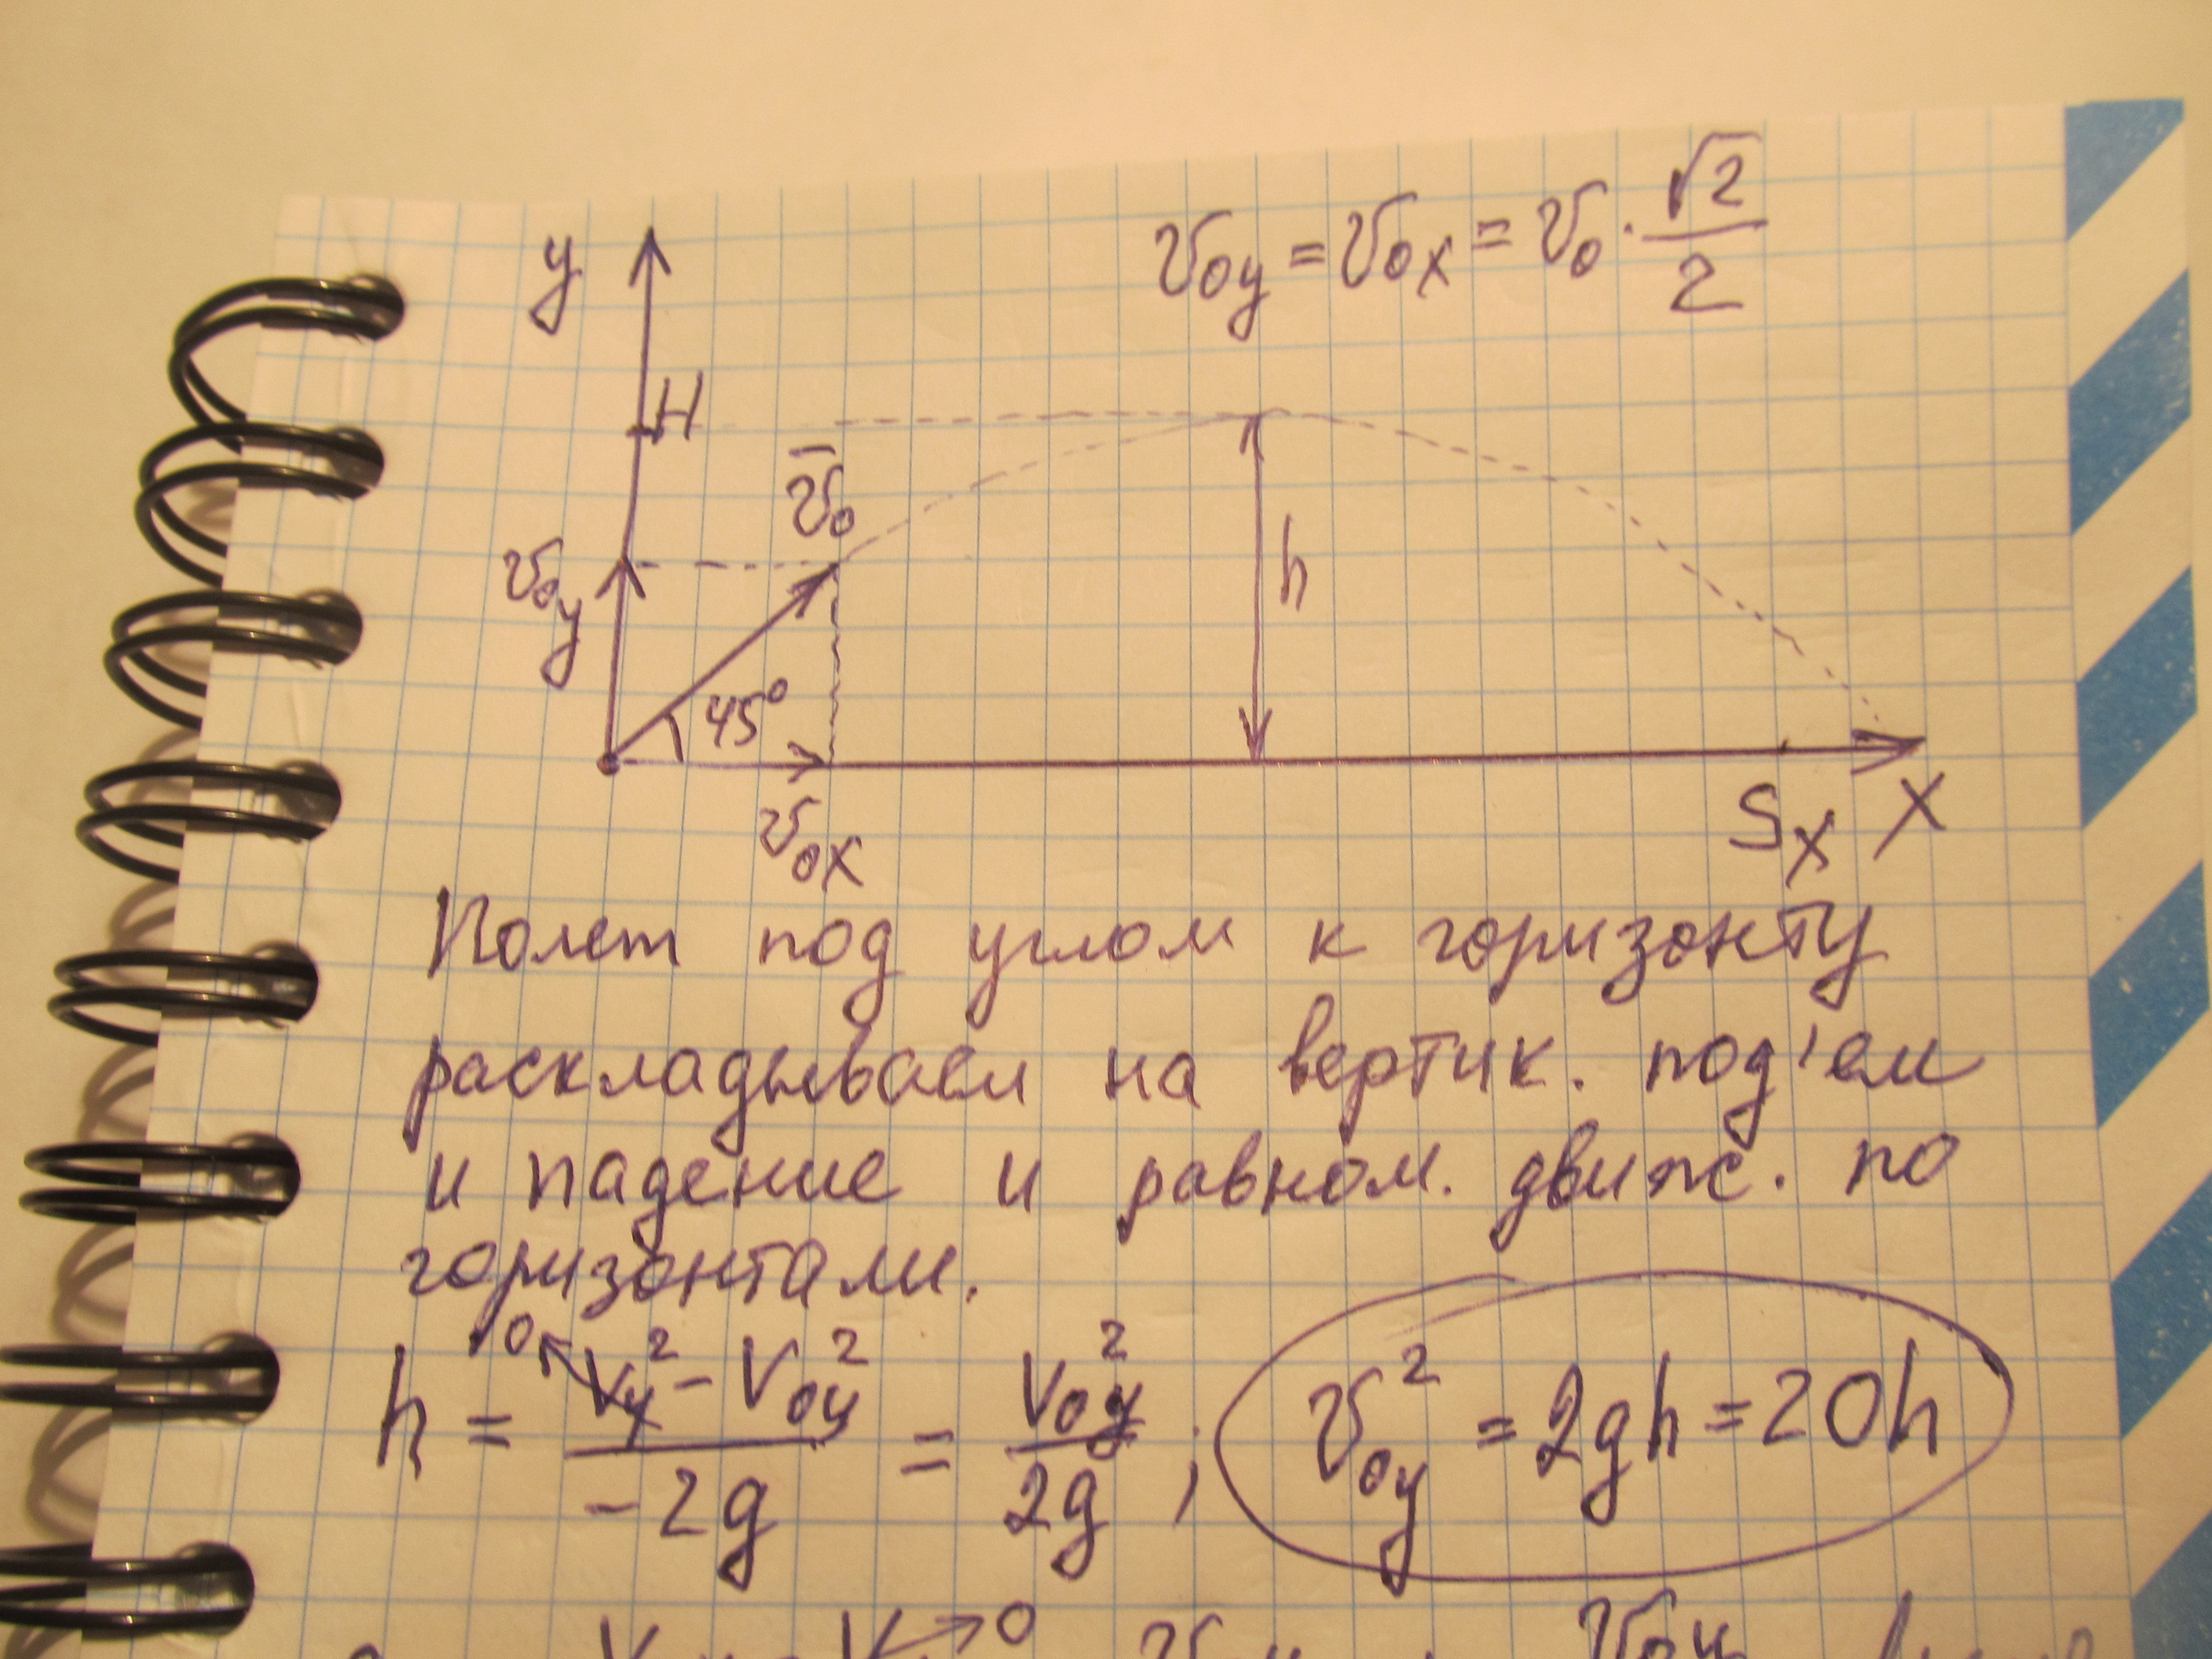 y
v₀y = v₀x = v₀ · √2/2
H
v̄₀
v₀y
h
45°
v₀x
Sx X
Полет под углом к горизонту
раскладываем на вертик. под'ем
и падение и равном. движ. по
горизонтали.
h = (Vy² →0 - V₀y²)/(-2g) = V₀y²/2g ; v₀y² = 2gh = 20h